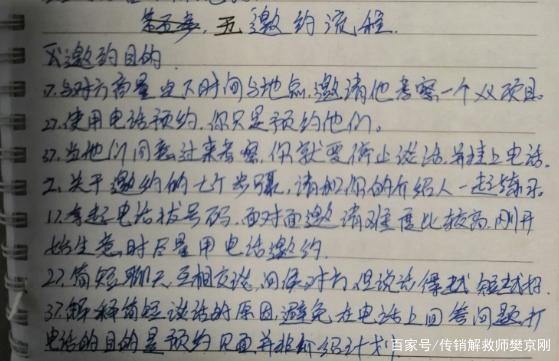 五邀约流程.
邀约目的.
1.与对方商量定下时间与地点,邀请他考察一个XX项目
2.使用电话预约,你只是预约他们。
3.当他们同意过来考察,你就要停止谈话,并挂上电话.
2.关于邀约的七个步骤,请和你的介绍人一起练习
1.拿起电话拔号码.面对面邀请难度比较高,刚开
始生意时尽量用电话邀约.
2.简短聊天,互相交谈,问候对方,但说话得越短越好.
3.解释简短谈话的原因,避免在电话上回答问题,打
电话的目的是预约见面并非介绍计划
百家号/传销解救师樊京刚